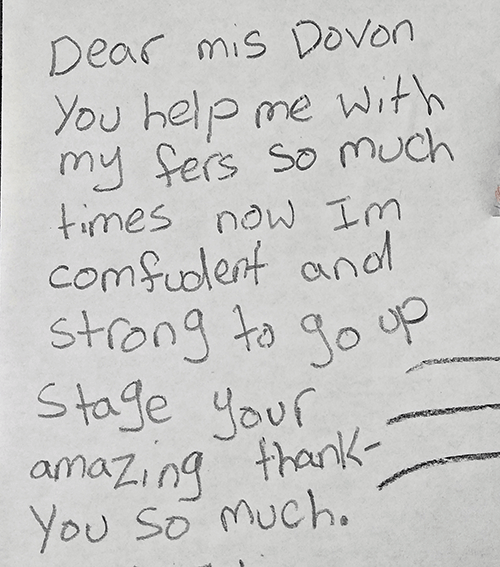 Dear mis Dovon
You help me with
my fers so much
times now Im
comfudent and
strong to go up
stage your
amazing thank-
you so much.